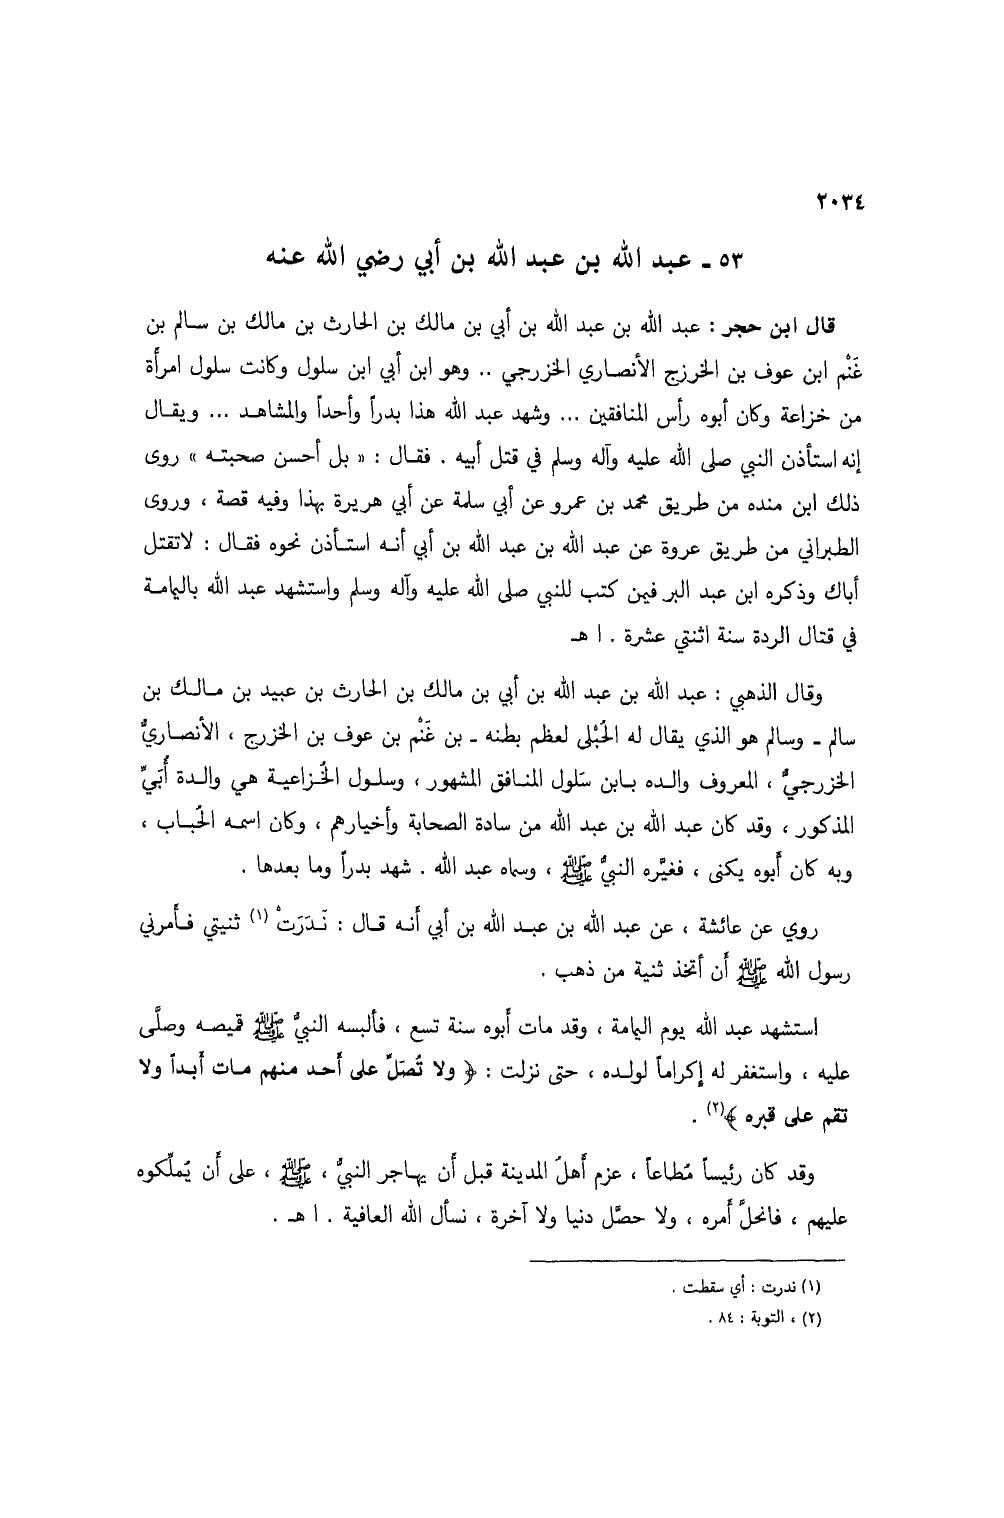 ٢٠٣٤
٥٣ ـ عبد الله بن عبد الله بن أبي رضي الله عنه
قال ابن حجر : عبد الله بن عبد الله بن أبي بن مالك بن الحارث بن مالك بن سالم بن
غَنْم ابن عوف بن الخرزج الأنصاري الخزرجي .. وهو ابن أبي ابن سلول وكانت سلول امرأة
من خزاعة وكان أبوه رأس المنافقين ... وشهد عبد الله هذا بدراً وأحداً والمشاهد ... ويقال
إنه استأذن النبي صلى الله عليه وآله وسلم في قتل أبيه . فقال : « بل أحسن صحبته » روى
ذلك ابن منده من طريق محمد بن عمرو عن أبي سلمة عن أبي هريرة بهذا وفيه قصة ، وروى
الطبراني من طريق عروة عن عبد الله بن عبد الله بن أبي أنه استأذن نحوه فقال : لاتقتل
أباك وذكره ابن عبد البر فيمن كتب للنبي صلى الله عليه وآله وسلم واستشهد عبد الله باليمامة
في قتال الردة سنة اثنتي عشرة . ا هـ
وقال الذهبي : عبد الله بن عبد الله بن أبي بن مالك بن الحارث بن عبيد بن مالك بن
سالم ـ وسالم هو الذي يقال له الحُبْلى لعظم بطنه ـ بن غَنْم بن عوف بن الخزرج ، الأنصاريُّ
الخزرجيُّ ، المعروف والده بابن سَلول المنافق المشهور ، وسلول الخُزاعية هي والدة أُبَيٍّ
المذكور ، وقد كان عبد الله بن عبد الله من سادة الصحابة وأخيارهم ، وكان اسمه الحُباب ،
وبه كان أَبوه يكنى ، فغيَّره النبيُّ ﷺ ، وسماه عبد الله . شهد بدراً وما بعدها .
روي عن عائشة ، عن عبد الله بن عبد الله بن أبي أَنه قال : نَدَرَتْ (١) ثنيتي فأمرني
رسول الله ﷺ أَن أتخذ ثنية من ذهب .
استشهد عبد الله يوم اليمامة ، وقد مات أَبوه سنة تسع ، فألبسه النبيُّ ﷺ قميصه وصلَّى
عليه ، واستغفر له إكراماً لولده ، حتى نزلت : ﴿ ولا تُصَلِّ على أَحد منهم مات أَبداً ولا
تقم على قبره ﴾(٢) .
وقد كان رئيساً مُطاعاً ، عزم أَهلُ المدينة قبل أَن يهاجر النبيُّ ، ﷺ ، على أَن يُملِّكوه
عليهم ، فانحلَّ أَمره ، ولا حصَّل دنيا ولا آخرة ، نسأل الله العافية . ا هـ .
(١) ندرت : أي سقطت .
(٢) ، التوبة : ٨٤ .